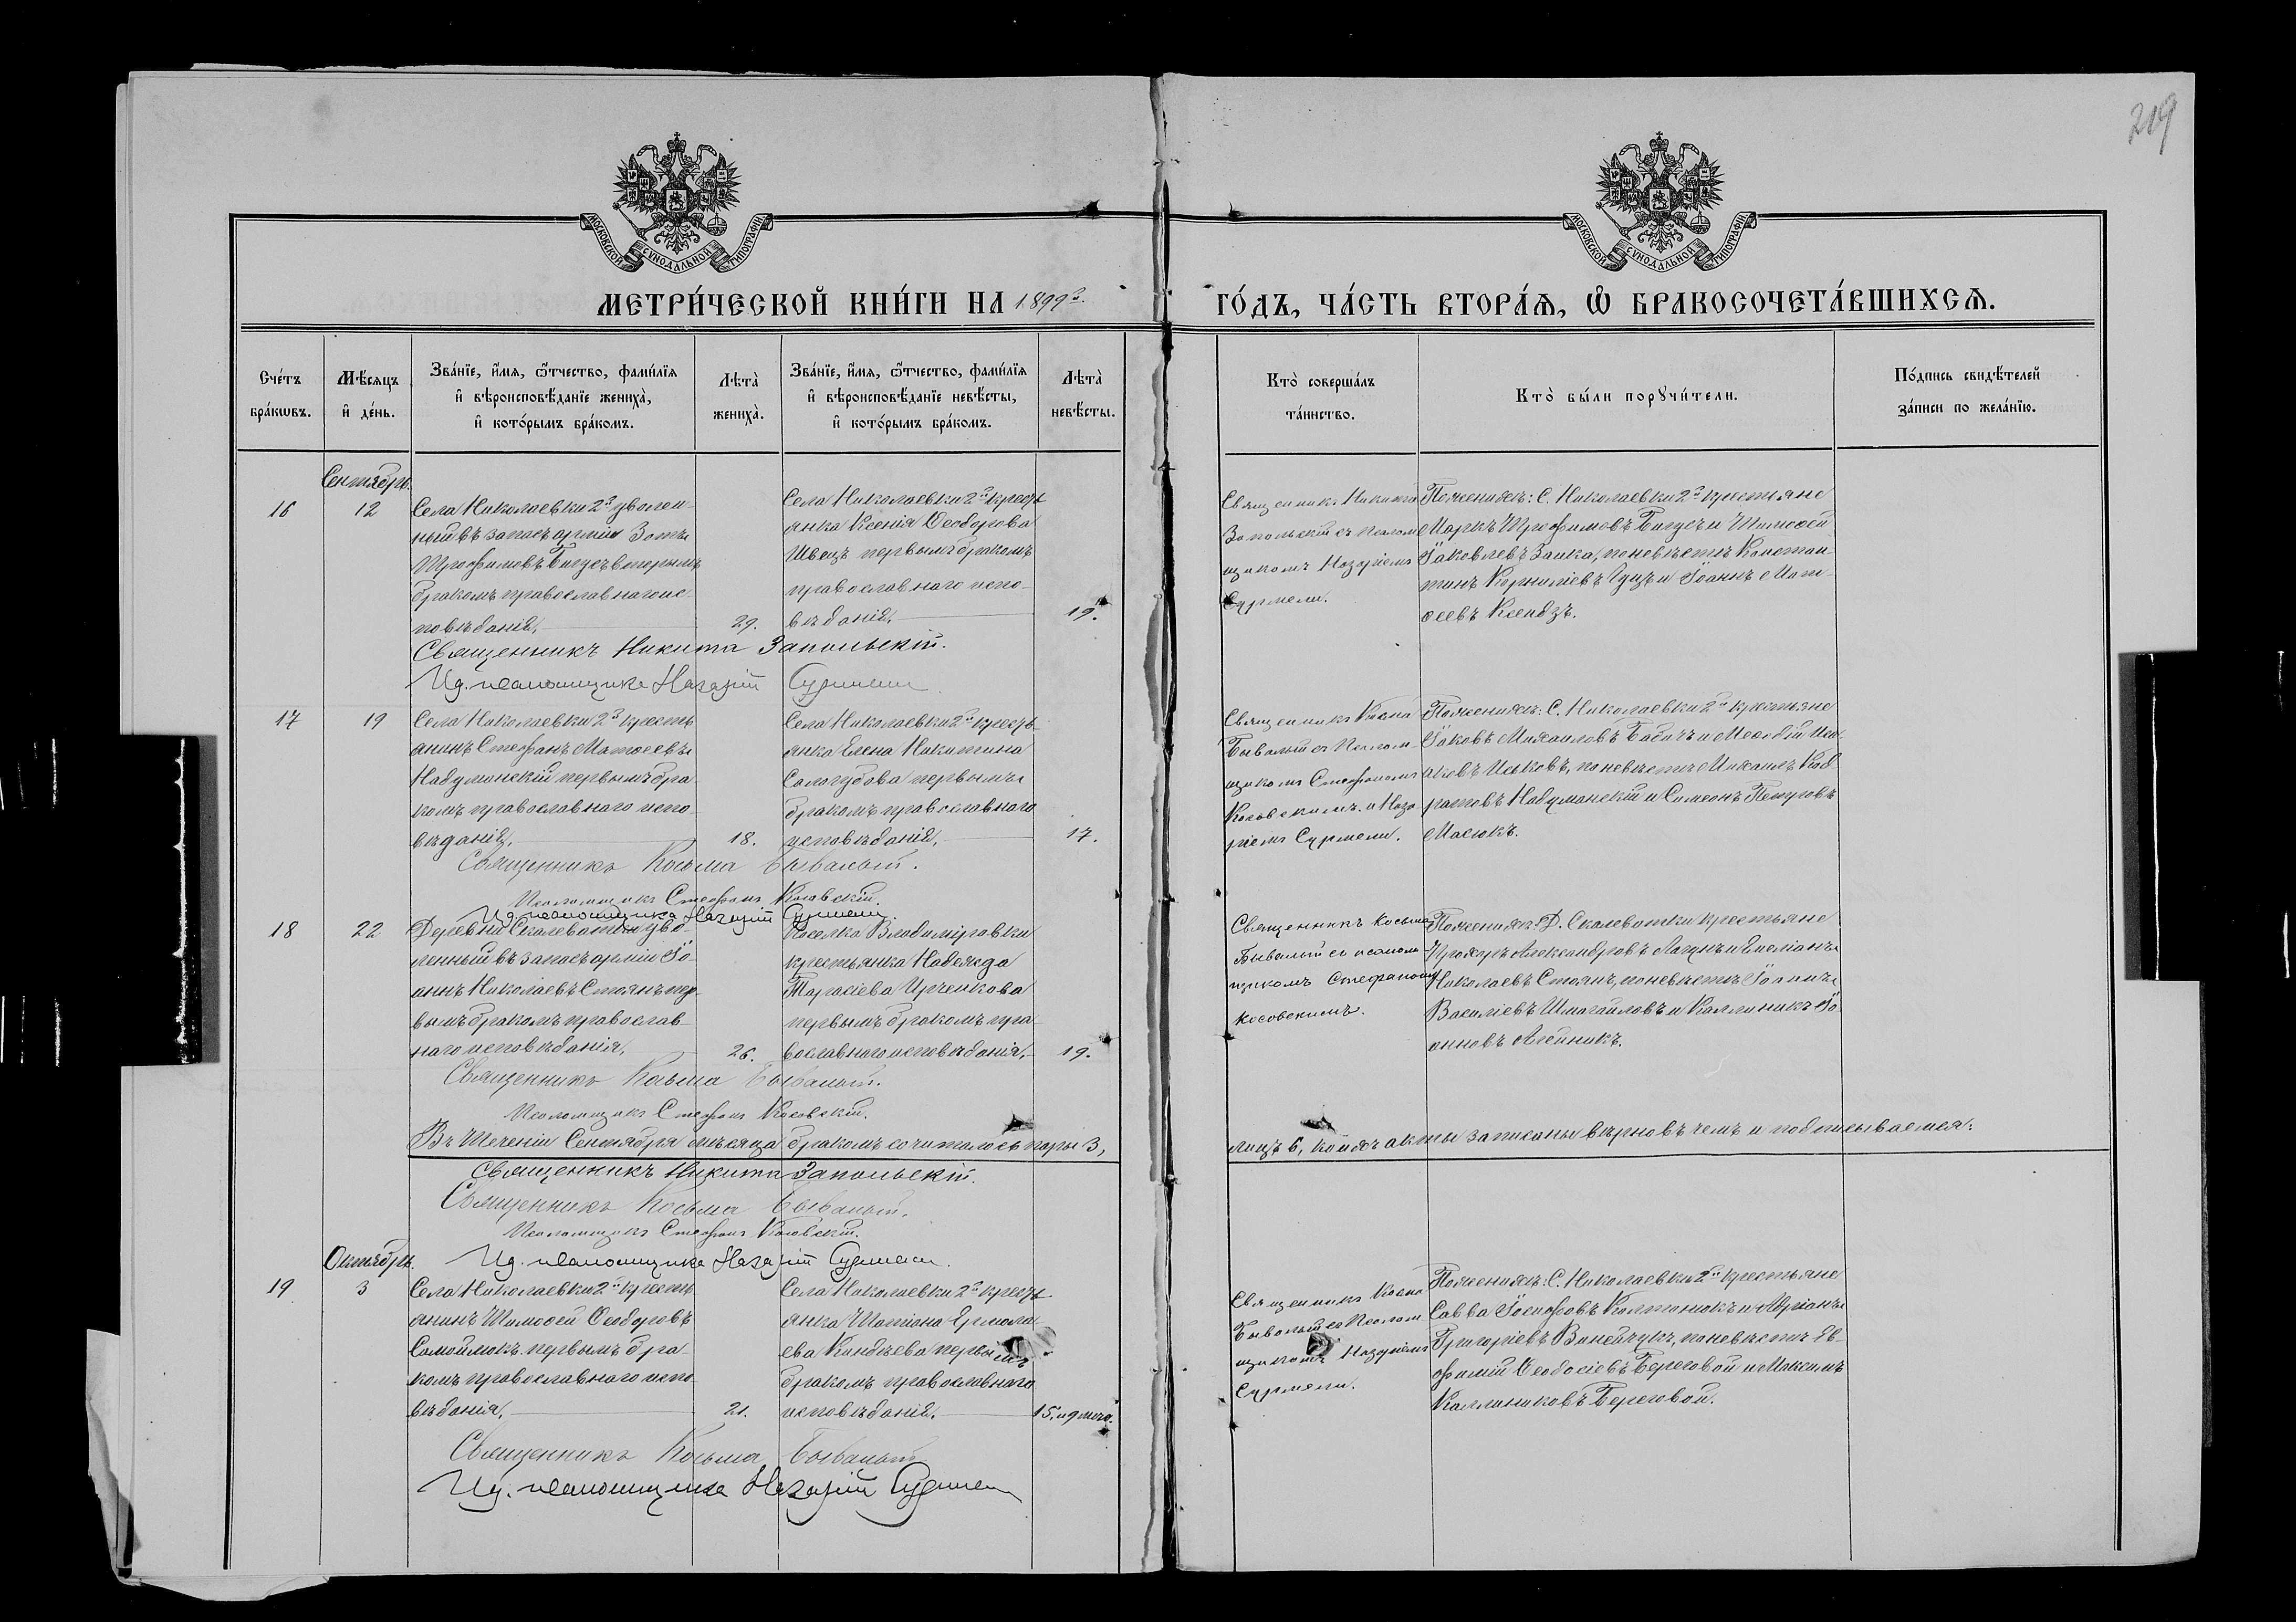 209
МОСКОВСКОЙ СѴНОДАЛЬНОЙ ТИПОГРАФІИ
МОСКОВСКОЙ СѴНОДАЛЬНОЙ ТИПОГРАФІИ
МЕТРИ́ЧЕСКОЙ КНИ́ГИ НА 1899 г.
ГО́ДЪ, ЧА́СТЬ ВТОРА́Ѧ, Ѽ БРАКОСОЧЕТА́ВШИХСѦ.
Сче́тъ
бра́кѡвъ.
Мѣ́сяцъ
и҆ де́нь.
Зва́нїе, и҆́мѧ, ѻ҆́тчество, фами́лїѧ
и҆ вѣроисповѣ́данїе женихà,
и҆ кото́рымъ бра́комъ.
Лѣтà
женихà.
Зва́нїе, и҆́мѧ, ѻ҆́тчество, фами́лїѧ
и҆ вѣроисповѣ́данїе невѣ́сты,
и҆ кото́рымъ бра́комъ.
Лѣтà
невѣ́сты.
Кто̀ соверша́лъ
та́инство.
Кто̀ бы́ли порꙋчи́тели.
По́дпись свидѣ́телей
за́писи по жела́нїю.
Сентябрь.
16
12
Села Николаевки 2й уволен-
ный въ запасъ арміи Зотъ
Трофимовъ Багусъ вторымъ
бракомъ православнаго ис-
повѣданія,
29.
Села Николаевки 2й кресть
янка Ксенія Ѳеодорова
Швецъ первымъ бракомъ
православнаго испо-
вѣданія,
19.
Священникъ Никита
Запольскій съ псалом
щикомъ Назаріемъ
Сурмели.
По женихѣ: С. Николаевки 2й крестьяне
Маркъ Трофимовъ Багусъ и Тимоѳей
Іаковлевъ Заика, по невѣстѣ Констан-
тинъ Корниліевъ Гуцъ и Іоаннъ Мат-
ѳеевъ Ксендзъ.
Священникъ Никита Запольскій.
И д. псаломщика Назарій Сурмели
17
19
Села Николаевки 2й кресть
янинъ Стефанъ Матѳеевъ
Надуманскій первымъ бра
комъ православнаго испо-
вѣданія,
18.
Села Николаевки 2й кресть-
янка Елена Никитина
Сологубова первымъ
бракомъ православнаго
исповѣданія,
17.
Священникъ Косма
Бывалый съ псалом-
щикомъ Стефаномъ
Косовскимъ и Наза
ріемъ Сурмели.
По женихѣ: С. Николаевки 2й крестьяне
Іаковъ Михаиловъ Бабичъ и
по невѣстѣ Михаилъ Код-
ратовъ Надуманскій и Симеонъ Петровъ
Масюкъ.
Священникъ Косьма Бывалый.
Псаломщикъ Стефанъ Косовскій.
И д. псаломщика Назарій Сурмели.
18
22
Деревни Скалеватки уво-
ленный въ запасъ арміи Іо-
аннъ Николаевъ Стоянъ пер-
вымъ бракомъ православ-
наго исповѣданія,
26.
Поселка Владиміровки
крестьянка Надежда
Тарасіева Ирченкова
первымъ бракомъ пра-
вославнаго исповѣданія,
19.
Священникъ Косьма
Бывалый съ псалом-
щикомъ Стефаномъ
Косовскимъ.
По женихѣ: Д. Скалеватки крестьяне
Прохоръ Александровъ Лагунъ и Емеліанъ
Николаевъ Стоянъ, по невѣстѣ Іоаннъ
Василіевъ Шмагайловъ и Каллиникъ Іо-
анновъ Алейникъ.
Священникъ Косьма Бывалый.
Псаломщикъ Стефанъ Косовскій.
Въ теченіи Сентября мѣсяца бракомъ сочиталось пары 3,
лицъ 6, коихъ акты записаны вѣрно въ чемъ и подписываемся:
Священникъ Никита Запольскій.
Священникъ Косьма Бывалый.
Псаломщикъ Стефанъ Косовскій.
И д. псаломщика Назарій Сурмели.
Октябрь.
19
3
Села Николаевки 2й кресть
янинъ Тимоѳей Ѳеодоровъ
Самойлюкъ первымъ бра-
комъ православнаго испо
вѣданія,
21.
Села Николаевки 2й кресть
янка Татіана Ермола
ева Киндѣева первымъ
бракомъ православнаго
исповѣданія.
15 и 9 мѣс.
Священникъ Косма
Бывалый съ псалом
щикомъ Назаріемъ
Сурмели.
По женихѣ: С. Николаевки 2й крестьяне
Савва Іосифовъ Колтонюкъ и Адріанъ
Григоріевъ Ванейчукъ, по невѣстѣ Ев-
фимій Ѳеодосіевъ Береговой и Максимъ
Каллиниковъ Береговой.
Священникъ Косьма Бывалый
И д. псаломщика Назарій Сурмели